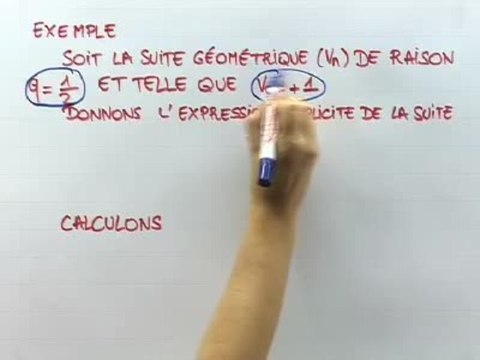 EXEMPLE
SOIT LA SUITE GÉOMÉTRIQUE (Vn) DE RAISON
q = 1/2 ET TELLE QUE V + 1
DONNONS L'EXPRESSI PLICITE DE LA SUITE
CALCULONS